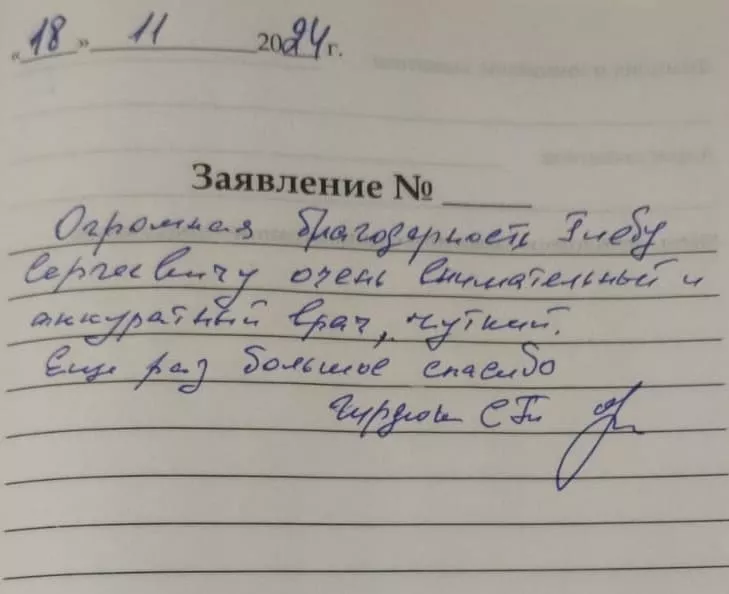 «18» 11 2024 г.
Заявление №
Огромная благодарность Глебу
Сергеевичу очень внимательный и
аккуратный врач, чуткий.
Еще раз большое спасибо